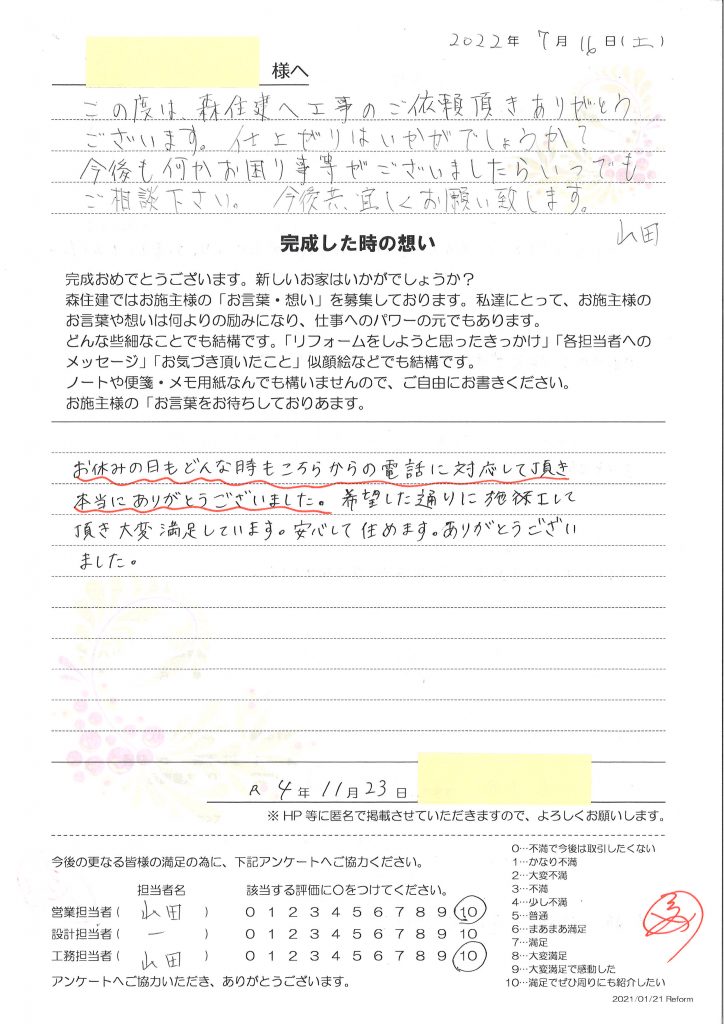 2022年 7月 16日(土)
様へ
この度は、森住建へ工事のご依頼頂きありがとう
ございます。仕上がりはいかがでしょうか?
今後も何かお困り事等がございましたらいつでも
ご相談下さい。 今後共、宜しくお願い致します。
山田
完成した時の想い
完成おめでとうございます。新しいお家はいかがでしょうか?
森住建ではお施主様の「お言葉・想い」を募集しております。私達にとって、お施主様の
お言葉や想いは何よりの励みになり、仕事へのパワーの元でもあります。
どんな些細なことでも結構です。「リフォームをしようと思ったきっかけ」「各担当者への
メッセージ」「お気づき頂いたこと」似顔絵などでも結構です。
ノートや便箋・メモ用紙なんでも構いませんので、ご自由にお書きください。
お施主様の「お言葉をお待ちしておりあます。
お休みの日もどんな時もこちらからの電話に対応して頂き
本当にありがとうございました。希望した通りに施工して
頂き大変満足しています。安心して住めます。ありがとうござい
ました。
R 4年 11月 23日
※HP等に匿名で掲載させていただきますので、よろしくお願いします。
今後の更なる皆様の満足の為に、下記アンケートへご協力ください。
担当者名 該当する評価に○をつけてください。
営業担当者( 山田 ) 0 1 2 3 4 5 6 7 8 9 10
設計担当者( ー ) 0 1 2 3 4 5 6 7 8 9 10
工務担当者( 山田 ) 0 1 2 3 4 5 6 7 8 9 10
アンケートへご協力いただき、ありがとうございます。
0…不満で今後は取引したくない
1…かなり不満
2…大変不満
3…不満
4…少し不満
5…普通
6…まあまあ満足
7…満足
8…大変満足
9…大変満足で感動した
10…満足でぜひ周りにも紹介したい
2021/01/21 Reform